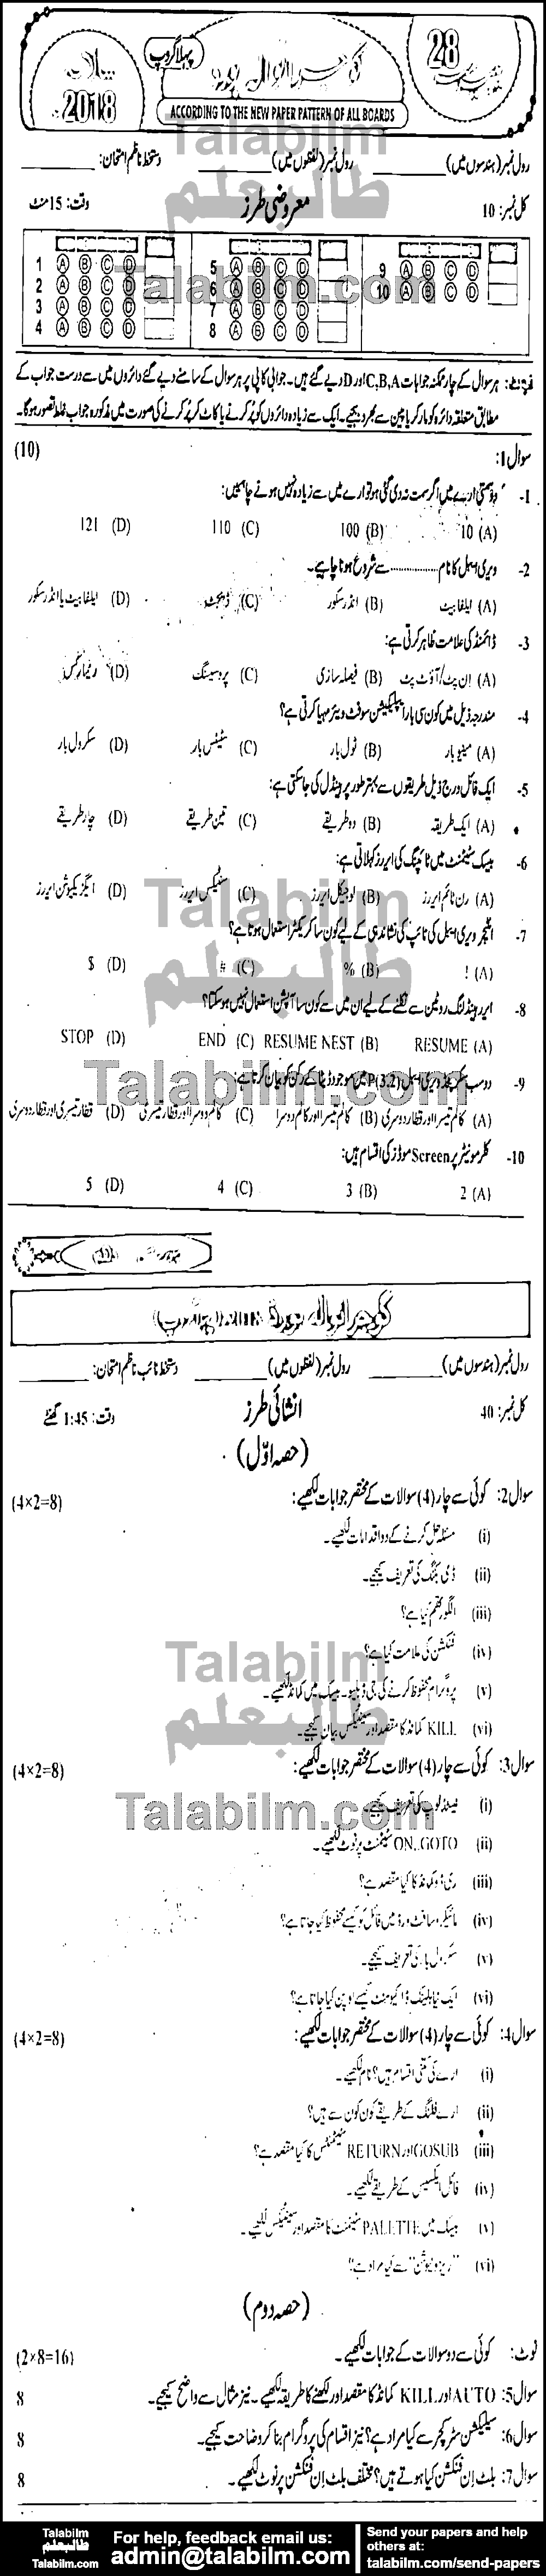 28
گوجرانوالہ بورڈ
پہلا گروپ
2018
ACCORDING TO THE NEW PAPER PATTERN OF ALL BOARDS
Talabilm
طالبعلم
رول نمبر (ہندسوں میں) رول نمبر (لفظوں میں) دستخط ناظم امتحان:
کل نمبر: 10 معروضی طرز وقت: 15 منٹ
1 A B C D 5 A B C D 9 A B C D
2 A B C D 6 A B C D 10 A B C D
3 A B C D 7 A B C D
4 A B C D 8 A B C D
Talabilm.com
نوٹ: ہر سوال کے چار ممکنہ جوابات C,B,A اور D دیے گئے ہیں۔ جوابی کاپی پر ہر سوال کے سامنے دیے گئے دائروں میں سے درست جواب کے
مطابق متعلقہ دائرہ کو مارکر یا پین سے بھر دیجیے۔ ایک سے زیادہ دائروں کو پُر کرنے یا کاٹ کر پُر کرنے کی صورت میں مذکورہ جواب غلط تصور ہوگا۔
سوال 1: (10)
1- دو سمتی ارے میں اگر سمت نہ دی گئی ہو تو ارے میں سے زیادہ نہیں ہونے چاہئیں:
10 (A) 100 (B) 110 (C) 121 (D)
2- ویری ایبل کا نام .............. سے شروع ہونا چاہیے۔
(A) ایلفابیٹ (B) انڈر سکور (C) ڈیجٹ (D) ایلفابیٹ یا انڈر سکور
3- ڈائمنڈ کی علامت ظاہر کرتی ہے:
(A) ان پٹ/آؤٹ پٹ (B) فیصلہ سازی (C) پروسیسنگ (D) ریمارکس
4- مندرجہ ذیل میں کون سی بار ایپلیکیشن سوفٹ ویئر مہیا کرتی ہے؟
(A) مینیو بار (B) ٹول بار (C) سٹیٹس بار (D) سکرول بار
5- ایک فائل درج ذیل طریقوں سے بہتر طور پر ہینڈل کی جا سکتی ہے:
(A) ایک طریقہ (B) دو طریقے (C) تین طریقے (D) چار طریقے
6- بیسک سٹیٹمنٹ میں ٹائپنگ کی ایررز کہلاتی ہے:
(A) رن ٹائم ایررز (B) لوجیکل ایررز (C) سنٹیکس ایررز (D) ایگزیکیوشن ایررز
Talabilm
طالبعلم
7- انٹیجر ویری ایبل کی ٹائپ کی نشاندہی کے لیے کون سا کریکٹر استعمال ہوتا ہے؟
! (A) % (B) # (C) $ (D)
8- ایرر ہینڈلنگ روٹین سے نکلنے کے لیے ان میں سے کون سا آپشن استعمال نہیں ہو سکتا؟
RESUME (A) RESUME NEST (B) END (C) STOP (D)
Talabilm.com
9- دو سب سکرپٹڈ ویری ایبل P(3,2) میں موجود ڈیٹا کے رکن کو بیان کرتا ہے:
(A) کالم تیسرا اور قطار دوسری (B) کالم تیسرا اور کالم دوسرا (C) کالم دوسرا اور قطار تیسری (D) قطار تیسری اور قطار دوسری
10- کلر مونیٹر پر Screen موڈز کی اقسام ہیں:
2 (A) 3 (B) 4 (C) 5 (D)
رول نمبر (ہندسوں میں) رول نمبر (لفظوں میں) دستخط نائب ناظم امتحان:
کل نمبر: 40 انشائی طرز وقت: 1:45 گھنٹے
(حصہ اوّل)
سوال 2: کوئی سے چار (4) سوالات کے مختصر جوابات لکھیے: (4×2=8)
(i) مسئلہ حل کرنے کے دو اقدامات لکھیے۔
(ii) ڈی بگنگ کی تعریف کیجیے۔
(iii) الگورتھم کیا ہے؟
(iv) فنکشن کی علامت کیا ہے؟
Talabilm
طالبعلم
(v) پروگرام محفوظ کرنے کی جی ڈبلیو۔ بیسک میں کمانڈ لکھیے۔
(vi) KILL کمانڈ کا مقصد اور سینٹیکس بیان کیجیے۔
سوال 3: کوئی سے چار (4) سوالات کے مختصر جوابات لکھیے: (4×2=8)
Talabilm.com
(i) نیسٹڈ لوپ کی تعریف کیجیے۔
(ii) ON..GOTO سٹیٹمنٹ پر نوٹ لکھیے۔
(iii) ری ڈو کمانڈ کا کیا مقصد ہے؟
(iv) مائیکروسافٹ ورڈ میں فائل کو کیسے محفوظ کیا جاتا ہے؟
(v) سکرول بار کی تعریف کیجیے۔
(vi) ایک نیا بلینک ڈاکیومنٹ کیسے اوپن کیا جاتا ہے؟
سوال 4: کوئی سے چار (4) سوالات کے مختصر جوابات لکھیے: (4×2=8)
(i) ارے کی کتنی اقسام ہیں؟ نام لکھیے۔
(ii) ارے فلنگ کے طریقے کون کون سے ہیں؟
(iii) GOSUB اور RETURN سٹیٹمنٹس کا کیا مقصد ہے؟
(iv) فائل ایکسیس کے طریقے لکھیے۔
(v) بیسک میں PALETTE سٹیٹمنٹ کا مقصد اور سینٹیکس لکھیے۔
(vi) "ریزولیوشن" سے کیا مراد ہے؟
(حصہ دوم)
نوٹ: کوئی سے دو سوالات کے جوابات لکھیے۔ (2×8=16)
سوال 5: AUTO اور KILL کمانڈ کا مقصد اور لکھنے کا طریقہ لکھیے۔ نیز مثال سے واضح کیجیے۔ 8
سوال 6: سلیکشن سٹرکچر سے کیا مراد ہے؟ نیز اقسام کی پروگرام بنا کر وضاحت کیجیے۔ 8
سوال 7: بلٹ اِن فنکشن کیا ہوتے ہیں؟ مختلف بلٹ اِن فنکشن پر نوٹ لکھیے۔ 8
Talabilm
طالبعلم
Talabilm.com
For help, feedback email us:
admin@talabilm.com
Send your papers and help
others at:
talabilm.com/send-papers